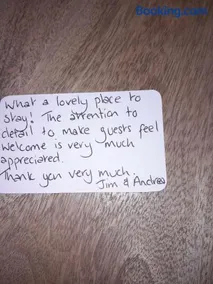 Booking.com
What a lovely place to
stay! The attention to
detail to make guests feel
welcome is very much
appreciated.
Thank you very much.
Jim & Andrea